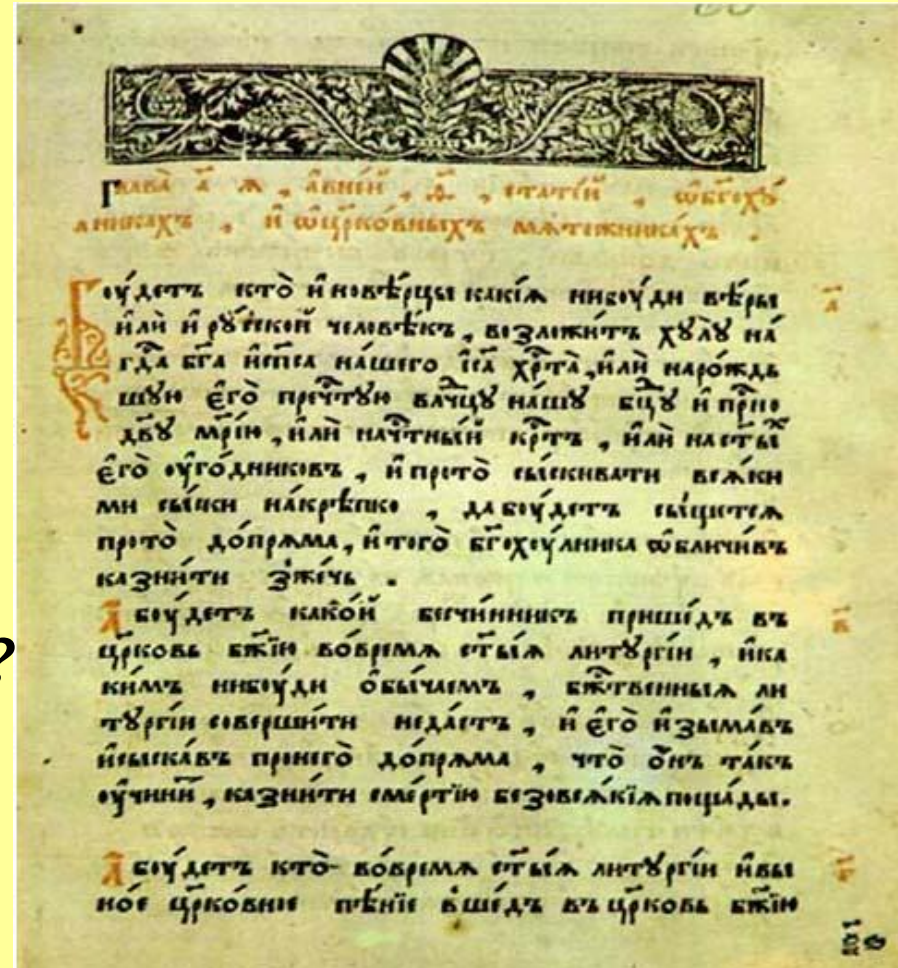 Глава̀ а҃ ѧ , а в҆не́й , ѳ҃ , статі́й , ѡ҆ бг҃охꙋ́
лникахъ , и҆ ѡ҆ цр҃ко́вныхъ мѧте́жника́хъ .
Бꙋ́детъ кто̀ и҆новѣ́рцы какі́ѧ нибꙋ́ди вѣ́ры
и҆лѝ и҆ рꙋ́ской человѣ́къ , возложи́тъ хꙋлꙋ̀ на́
гд҃а бг҃а и҆ сп҃са на́шего і҆са хр҃та̀ , и҆лѝ наро́ждь
шꙋю є҆го̀ преч҃тꙋю влд҃чцꙋ на́шꙋ бц҃ꙋ и҆ прн҃о
дв҃ꙋ мр҃і́ю , и҆лѝ на ч҃тны́й кр҃тъ , и҆лѝ на ст҃ы́х
є҆го̀ оу҆го́дниковъ , и҆ про то̀ сы́скивати всѧ́ки
ми сы́ски на́крѣпко , да бꙋ́детъ сы́щетсѧ
про то̀ до́прѧма , и҆ того̀ бг҃охꙋ́лника ѡ҆бличи́въ
казни́ти зже́чь .
А҆ бꙋ́детъ како́й бесчи́нникъ прише́дъ въ
цр҃ковь бж҃їю во́времѧ ст҃ы́ѧ литꙋргі́и , и҆ ка
ки́мъ нибꙋ́ди ѻ҆бы́чаемъ , бж҃твенныѧ ли
тꙋргі́и соверши́ти неда́стъ , и҆ є҆го̀ и҆зыма́въ
и҆ сыска́въ про него̀ до́прѧма , что̀ ѻ҆́нъ та́къ
оу҆чини́т , казни́ти сме́ртїю безо всѧ́кїѧ поща́ды .
А҆ бꙋ́детъ кто̀ во́времѧ ст҃ы́ѧ литꙋргі́и и҆ вы
но́е цр҃ко́вное пѣ́нїе вше́дъ въ цр҃ковь бж҃їю
?